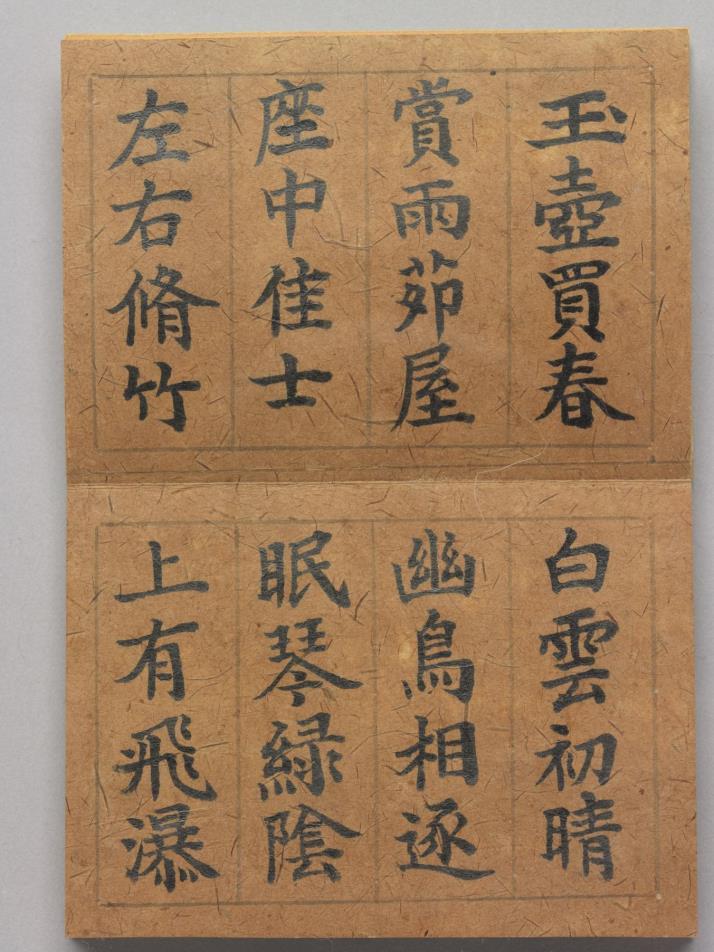 玉壺買春
賞雨茆屋
座中佳士
左右脩竹
白雲初晴
幽鳥相逐
眠琴綠陰
上有飛瀑